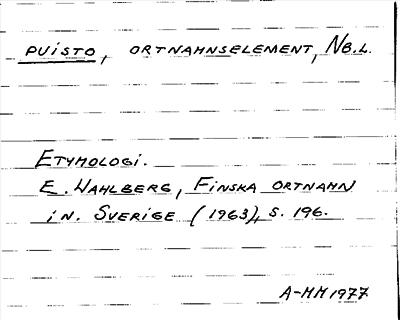 PUISTO, ORTNAMNSELEMENT, NB.L.
ETYMOLOGI.
E. WAHLBERG, FINSKA ORTNAMN
I N. SVERIGE (1963), S. 196.
A-MM 1977